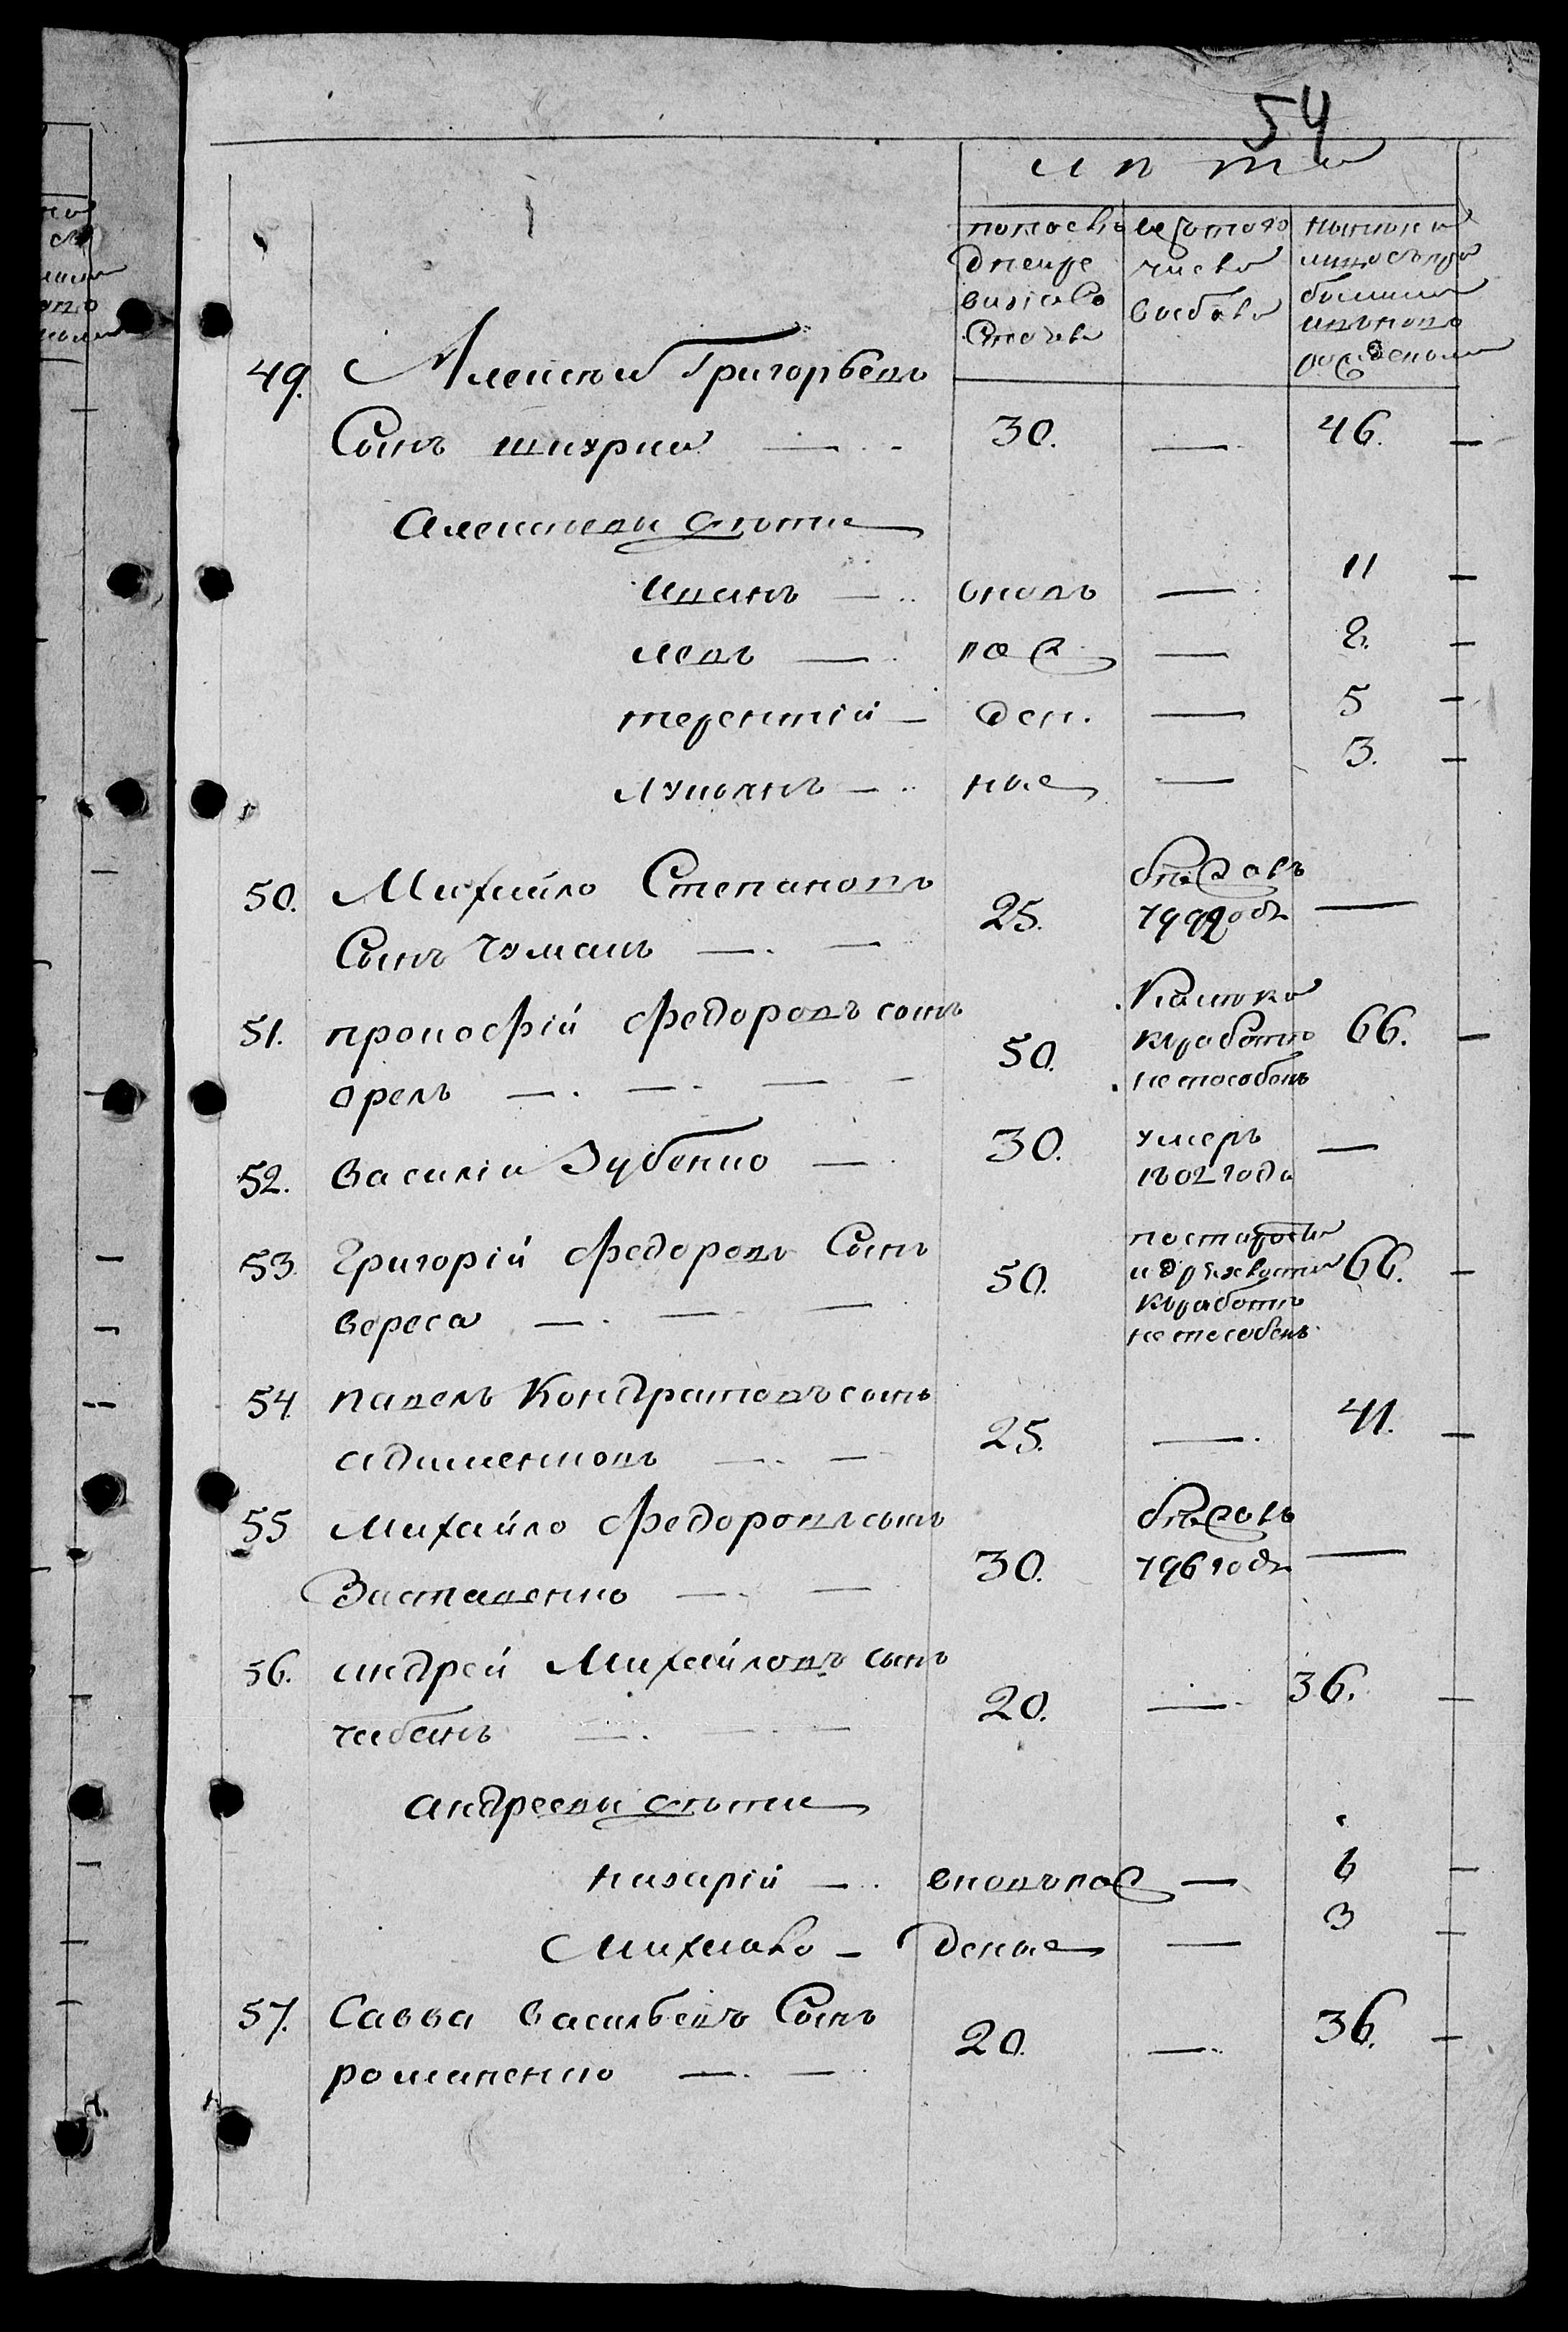 54
лѣта
по последней ревизiи состояло
изъ того числа выбыло
ныне на лицо съ прибылыми и вновь рожденными
49. Алексей Григорьевъ
Сынъ шкурка 30. — 46. —
Алексеевы дѣти
Иванъ — вновь — 11 —
левъ — рож — 8. —
терентiй — ден. — 5 —
лукьянъ — ные — 3. —
50. Михайло Степановъ
Сынъ Чумакъ — 25. бежалъ 799 годъ —
51. прокофiй Федоровъ сынъ
орелъ — 50. къ работе не способенъ 66. —
52. василiй Зубенко — 30. умеръ 1802 года —
53. Григорiй Федоровъ Сынъ
вереса — 50. по старости и дряхлости къ работе не способенъ 66. —
54. павелъ Кондратовъ сынъ
адаментовъ — 25. — 41. —
55 Михайло Федоровъ сынъ
Заставенко — 30. бежалъ 796 годъ —
56. андрей Михайловъ сынъ
чабанъ — 20. — 36. —
андреевы дѣти
назарiй — вновь рож — 6 —
Михайло — деные — 3 —
57. Савва васильевъ Сынъ
романенко — 20. — 36. —